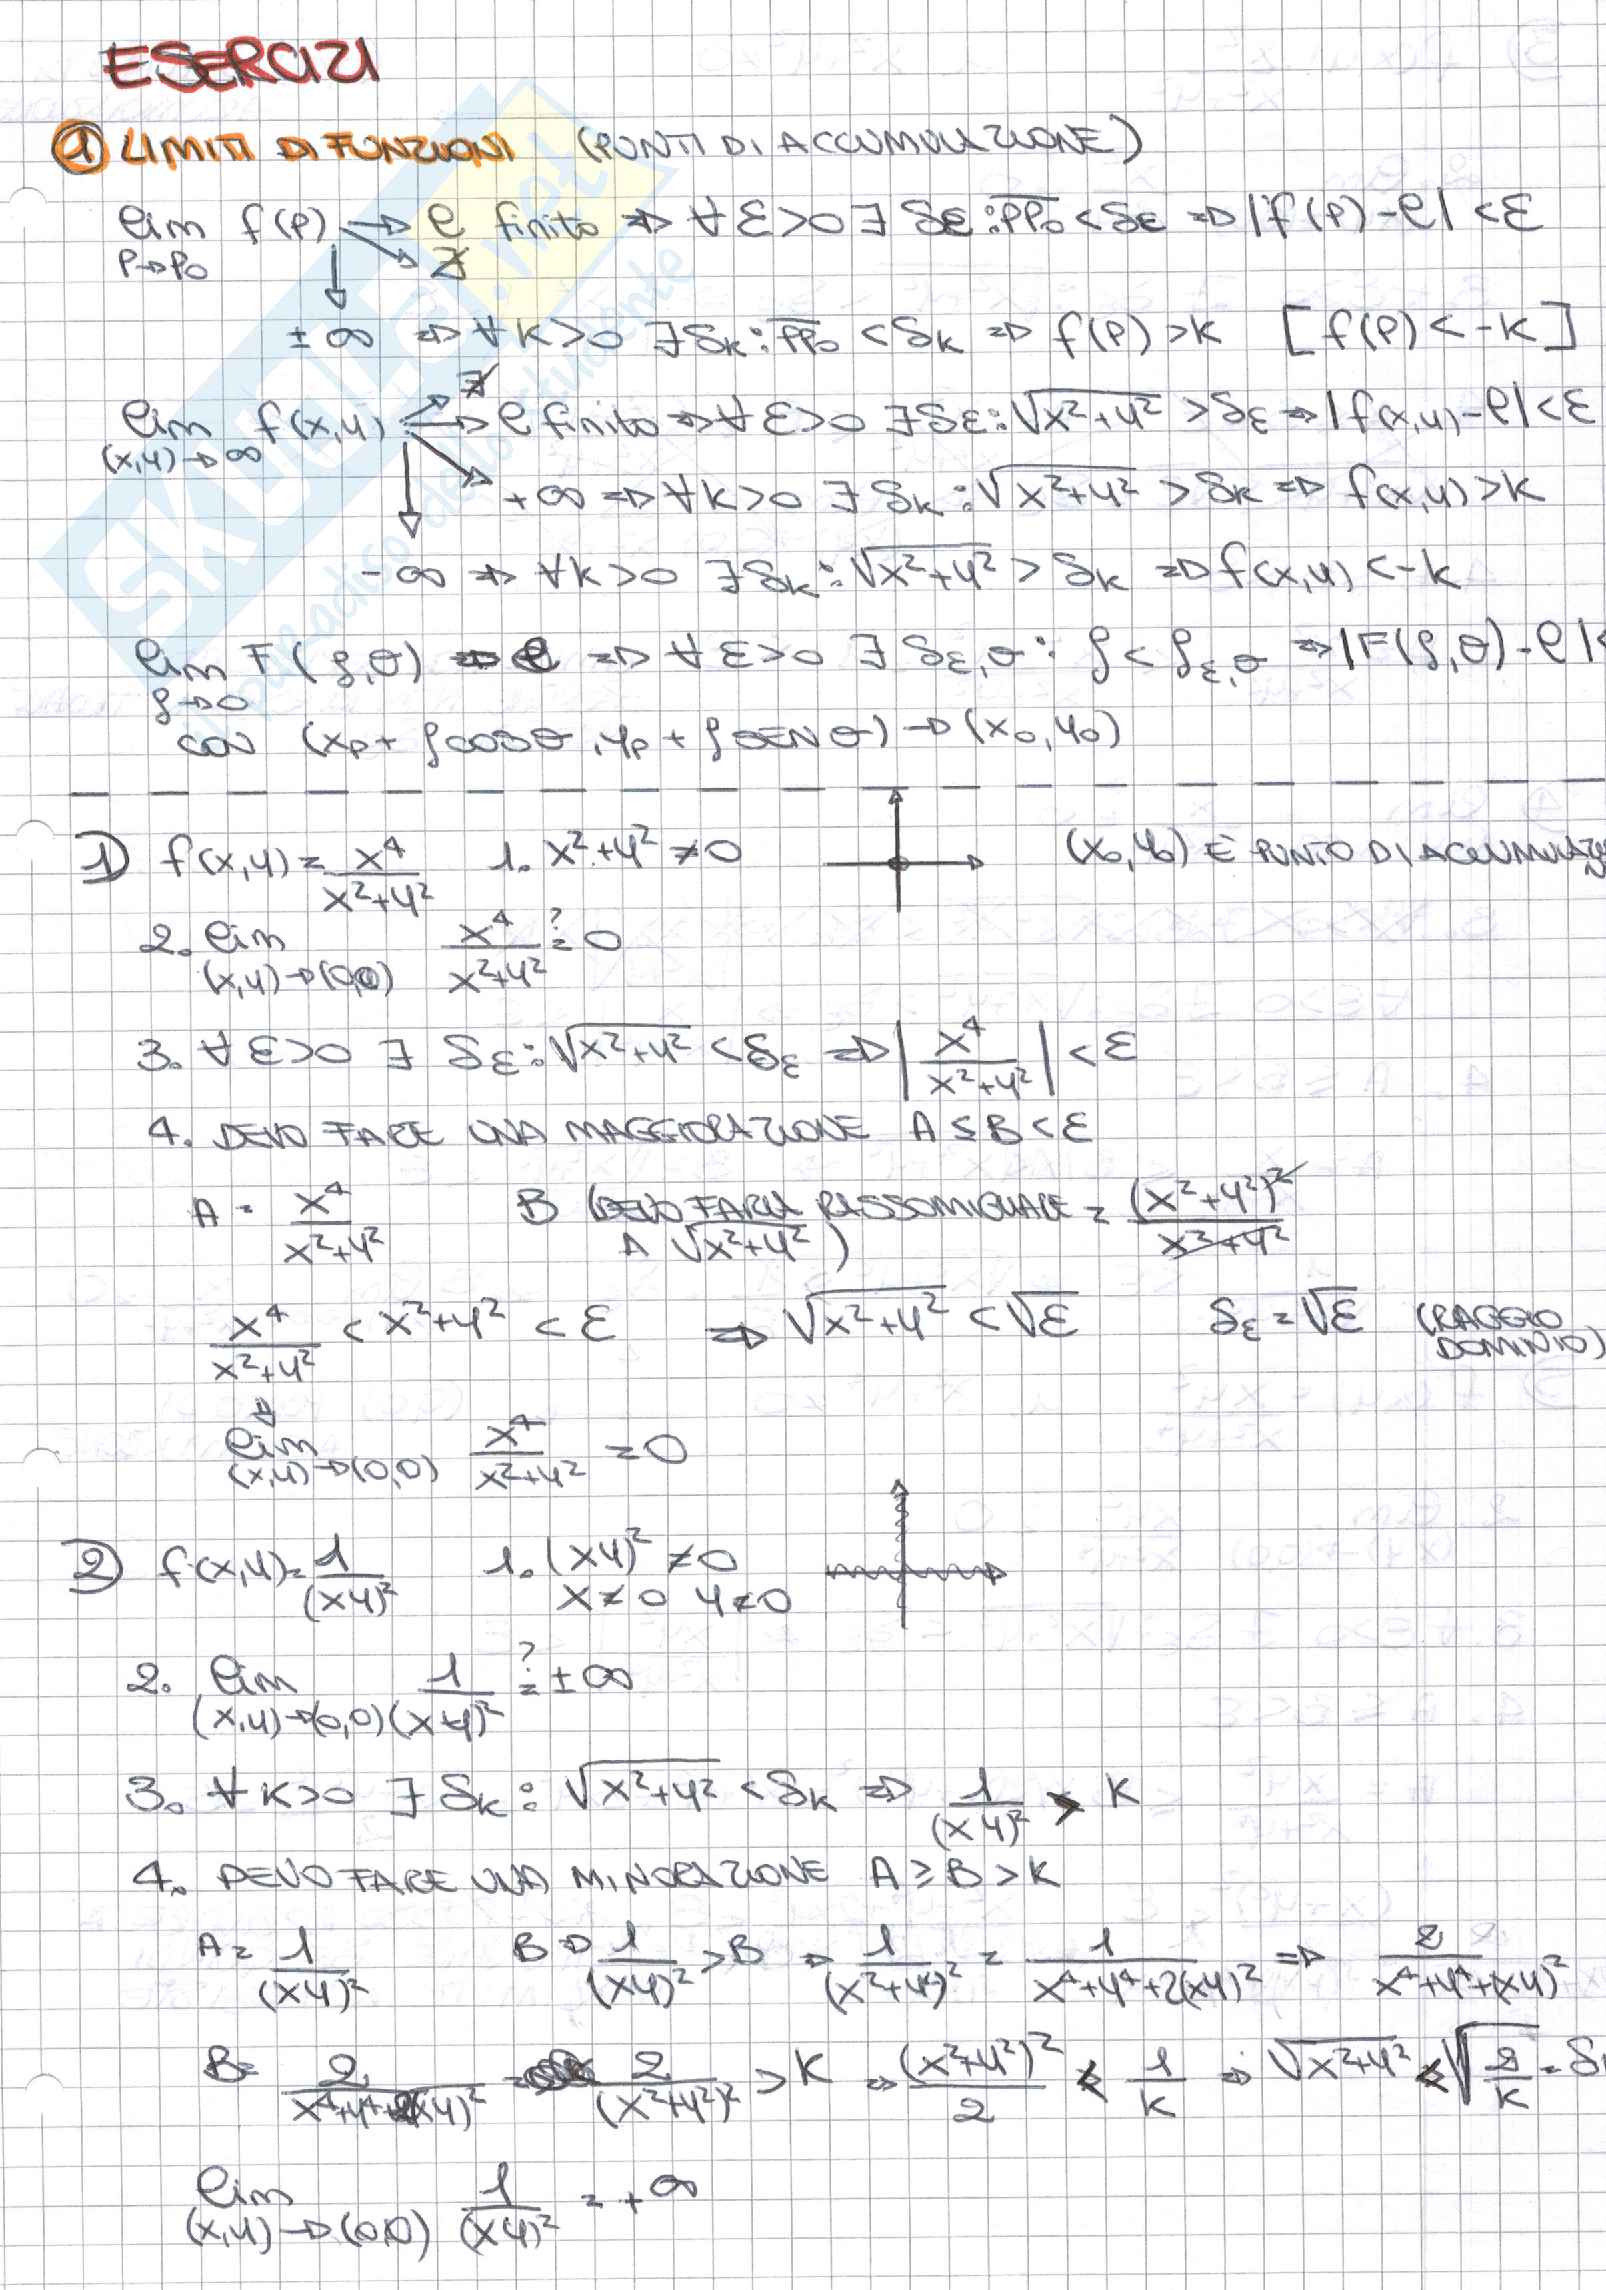 ESERCIZI
① LIMITI DI FUNZIONI (PUNTI DI ACCUMULAZIONE)
lim f(P) → l finito ⇒ ∀ ε>0 ∃ δε : PP₀ < δε ⇒ |f(P) - l| < ε
P→P₀ ∄
±∞ ⇒ ∀ k>0 ∃ δk : PP₀ < δk ⇒ f(P) > k [f(P) < -k]
∄
lim f(x,y) → l finito ⇒ ∀ ε>0 ∃ δε : √(x²+y²) > δε ⇒ |f(x,y) - l| < ε
(x,y)→∞
+∞ ⇒ ∀ k>0 ∃ δk : √(x²+y²) > δk ⇒ f(x,y) > k
-∞ ⇒ ∀ k>0 ∃ δk : √(x²+y²) > δk ⇒ f(x,y) < -k
lim F(ρ,θ) = l ⇒ ∀ ε>0 ∃ δε,θ : ρ < ρε,θ ⇒ |F(ρ,θ) - l| <
ρ→0
con (xp + ρcosθ, yp + ρ SENθ) → (x₀,y₀)
1) f(x,y) = x⁴/(x²+y²) 1. x²+y² ≠ 0 (x₀,y₀) È PUNTO DI ACCUMULAZIONE
2. lim x⁴/(x²+y²) ?= 0
(x,y)→(0,0)
3. ∀ ε>0 ∃ δε : √(x²+y²) < δε ⇒ |x⁴/(x²+y²)| < ε
4. DEVO FARE UNA MAGGIORAZIONE A ≤ B < ε
A = x⁴/(x²+y²) B (DEVO FARLA RASSOMIGLIARE = (x²+y²)²/(x²+y²)
A √(x²+y²))
x⁴/(x²+y²) < x²+y² < ε ⇒ √(x²+y²) < √ε δε = √ε (RAGGIO
DOMINIO)
⇓
lim x⁴/(x²+y²) = 0
(x,y)→(0,0)
2) f(x,y) = 1/(xy)² 1. (xy)² ≠ 0
x ≠ 0 y ≠ 0
2. lim 1/(xy)² ?= ±∞
(x,y)→(0,0)
3. ∀ k>0 ∃ δk : √(x²+y²) < δk ⇒ 1/(xy)² > k
4. DEVO FARE UNA MINORAZIONE A ≥ B > k
A = 1/(xy)² B ⇒ 1/(xy)² > B ⇒ 1/(x²+y²)² = 1/(x⁴+y⁴+2(xy)²) ⇒ 2/(x⁴+y⁴+(xy)²
B = 2/(x⁴+y⁴+2(xy)²) = 2/(x²+y²)² > k ⇒ (x²+y²)²/2 < 1/k ⇒ √(x²+y²) < √(2/k) = δ
lim 1/(xy)² = +∞
(x,y)→(0,0)
SKUOLA.net